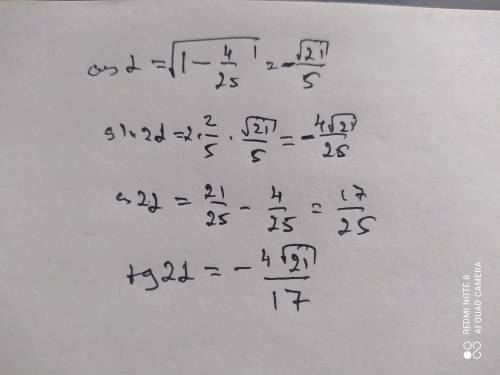 cos α = √(1 - 4/25) = -√21/5
sin 2α = 2 · 2/5 · √21/5 = -4√21/25
cos 2α = 21/25 - 4/25 = 17/25
tg 2α = - 4√21/17
REDMI NOTE 8
AI QUAD CAMERA